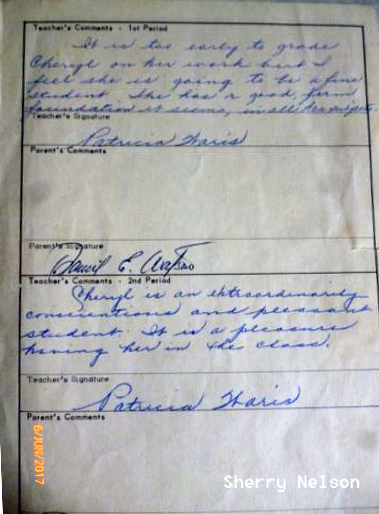 Teacher's Comments - 1st Period
It is too early to grade
Cheryl on her work but I
feel she is going to be a fine
student. She has a good, firm
foundation it seems, in all her subjects.
Teacher's Signature
Patricia Haris
Parent's Comments
Parent's Signature
Daniel E.
Teacher's Comments - 2nd Period
Cheryl is an extraordinarily
conscientious and pleasant
student. It is a pleasure
having her in the class.
Teacher's Signature
Patricia Haris
Parent's Comments
6/JUN/2017
Sherry Nelson